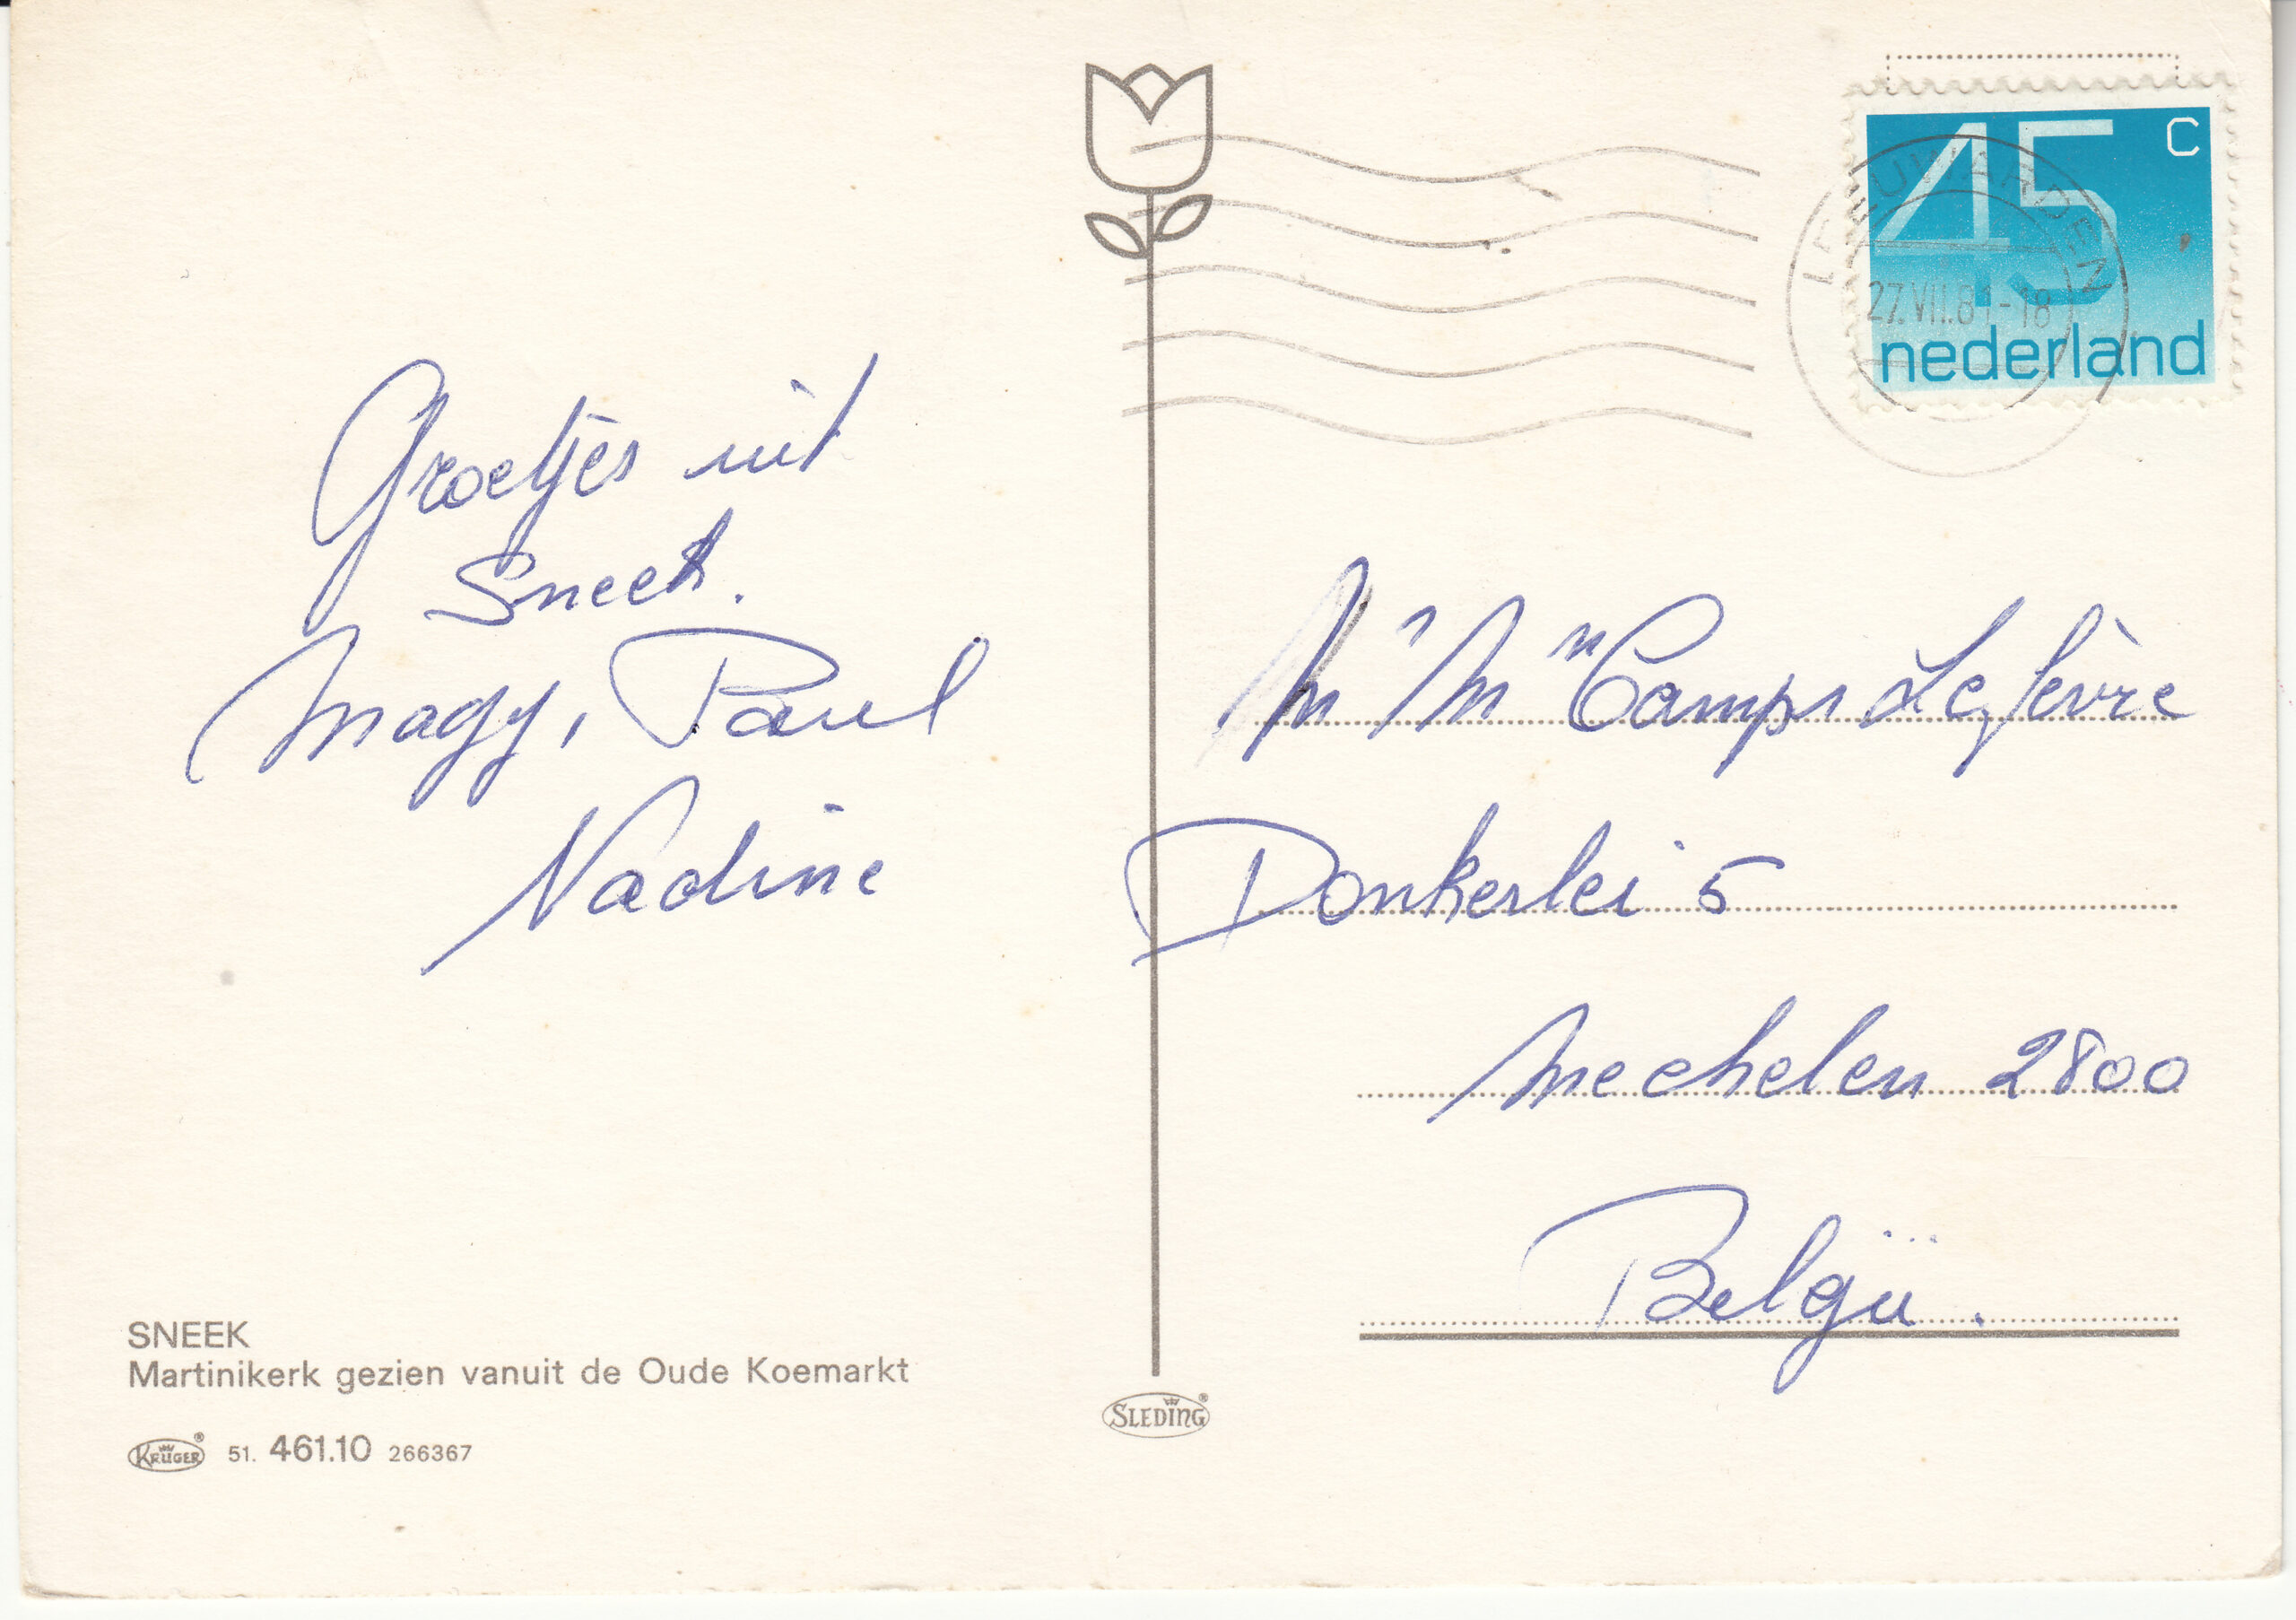 Groetjes uit
Sneek.
Magy, Paul
Nadine
SNEEK
Martinikerk gezien vanuit de Oude Koemarkt
KRÜGER® 51. 461.10 266367
SLEDING®
45 C
nederland
LEEUWARDEN
27.VII.81-18
M' M" Camps Lefèvre
Donkerlei 5
Mechelen 2800
Belgïe.